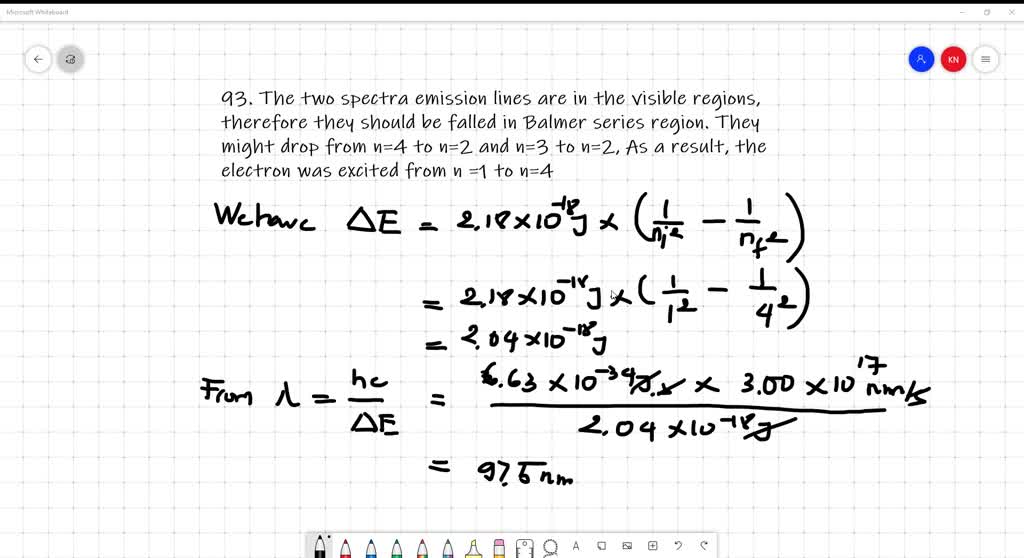 Microsoft Whiteboard
KN
93. The two spectra emission lines are in the visible regions,
therefore they should be falled in Balmer series region. They
might drop from n=4 to n=2 and n=3 to n=2, As a result, the
electron was excited from n =1 to n=4
We have ΔE = 2.18×10⁻¹⁸J × (1/nᵢ² − 1/n_f²)
= 2.18×10⁻¹⁸J × (1/1² − 1/4²)
= 2.04×10⁻¹⁸J
From λ = hc/ΔE = 6.63×10⁻³⁴J.s × 3.00×10¹⁷nm/s / 2.04×10⁻¹⁸J
= 97.5nm
A